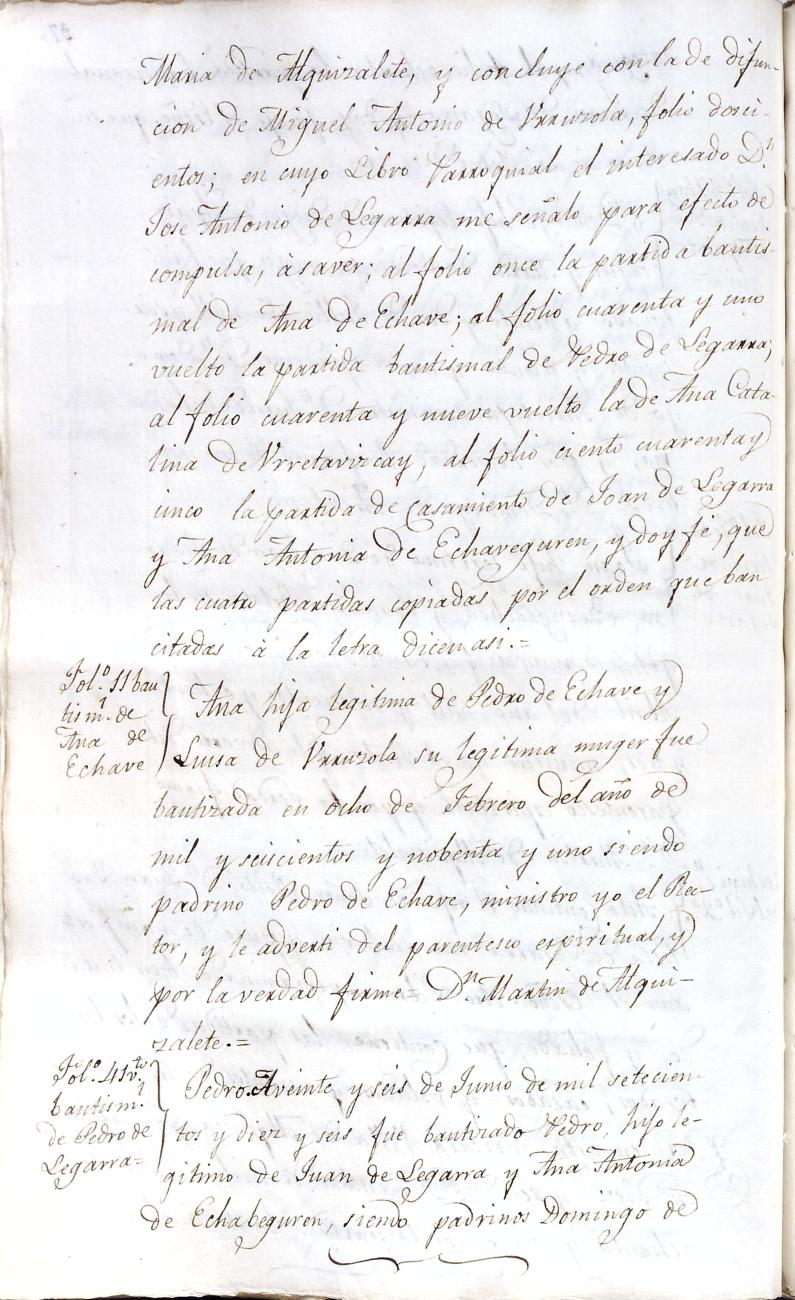 Maria de Alquizalete, y concluye con la de difun-
cion de Miguel Antonio de Vrruzola, folio dosci-
entos; en cuyo Libro Parroquial el interesado D.n
Jose Antonio de Legarra me señalo para efecto de
compulsa, à saver; al folio once la partida bautis-
mal de Ana de Echave; al folio cuarenta y uno
vuelto la partida bautismal de Pedro de Legarra;
al folio cuarenta y nueve vuelto la de Ana Cata-
lina de Vrretavizcay, al folio ciento cuarenta y
cinco la partida de Casamiento de Joan de Legarra
y Ana Antonia de Echaveguren, y doy fé, que
las cuatro partidas copiadas por el orden que ban
citadas à la letra dicen asi.=
Fol.o 11 bau
tism.l de
Ana de
Echave
Ana hija legitima de Pedro de Echave y
Luisa de Vrruzola su legitima muger fue
bautizada en ocho de Febrero del año de
mil y seiscientos y nobenta y uno siendo
padrino Pedro de Echave, ministro yo el Rec-
tor, y le adverti del parentesco espiritual, y
por la verdad firme= D.n Martin de Alqui-
zalete.=
Fol.o 41 v.to
bautism.l
de Pedro de
Legarra=
Pedro. A veinte y seis de Junio de mil setecien-
tos y diez y seis fue bautizado Pedro, hijo le-
gitimo de Juan de Legarra y Ana Antonia
de Echabeguren, siendo padrinos Domingo de